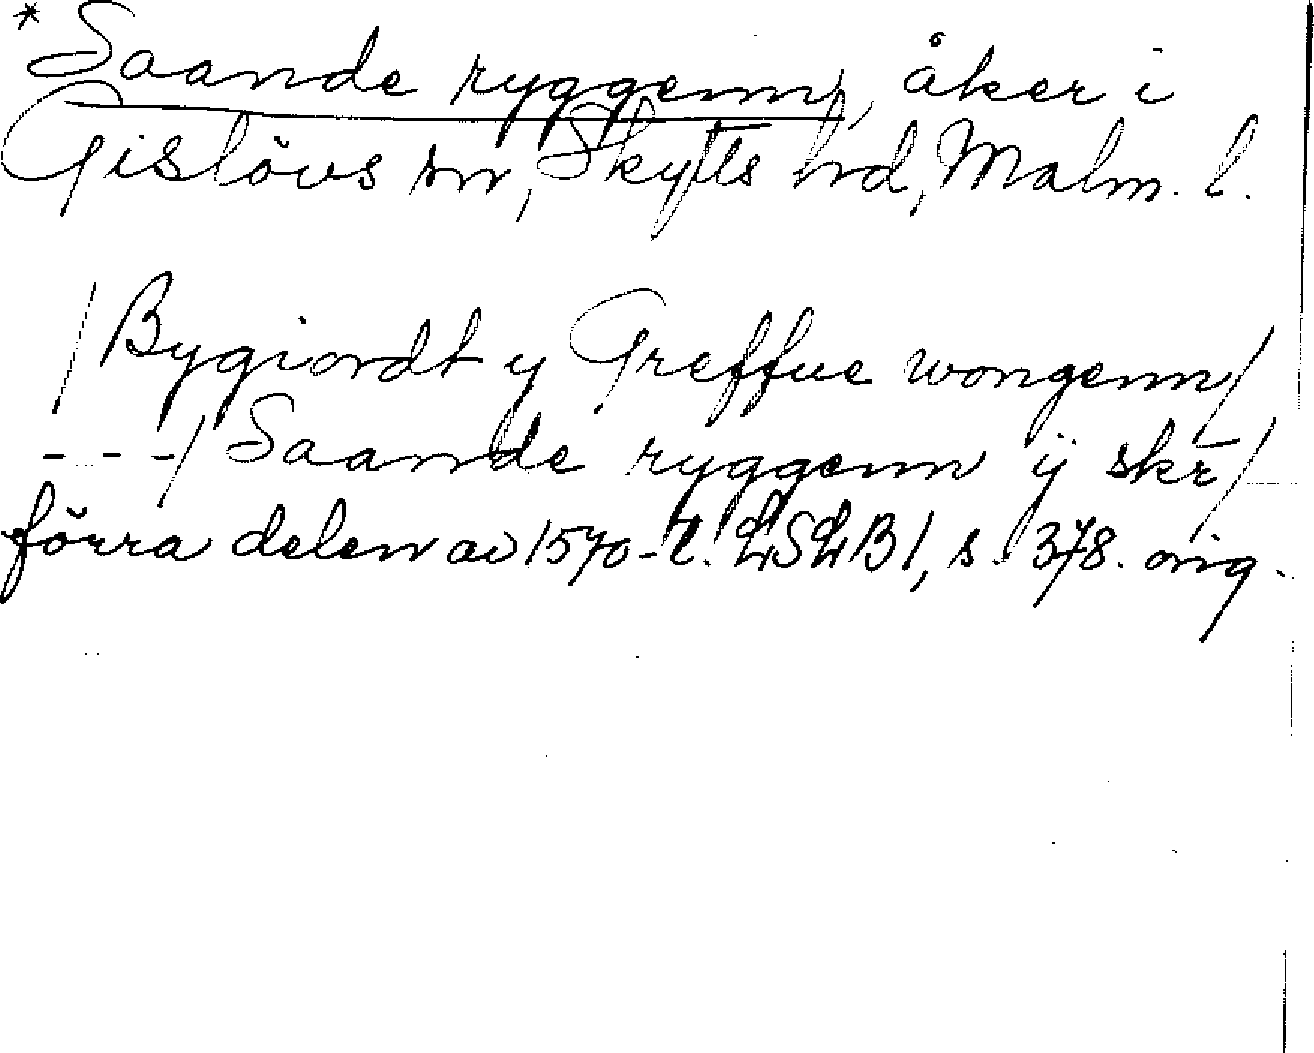 *Saande ryggenn, åker i
Gislövs sn, Skytts hd, Malm. l.
/Bygiordt y Greffue wongenn/
---/Saande ryggenn ÿ skr/
förra delen av 1570-t. LSLB1, s. 378. orig.